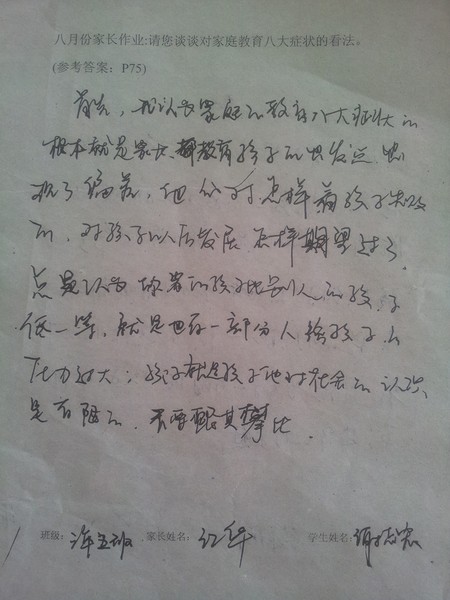 八月份家长作业:请您谈谈对家庭教育八大症状的看法。
(参考答案：P75)
首先，我认为家庭的教育八大症状的
根本就是家长教育孩子的出发点出
现了偏差，他们对怎样看孩子失败
的，对孩子以后发展怎样期望过高
点是认为你养的孩子比别人的孩子
低一等，就是也有一部分人给孩子的
压力过大；孩子就是孩子他对社会的认识
是有限的，不要跟其攀比
班级： 五班 家长姓名： 红华 学生姓名： 谢志